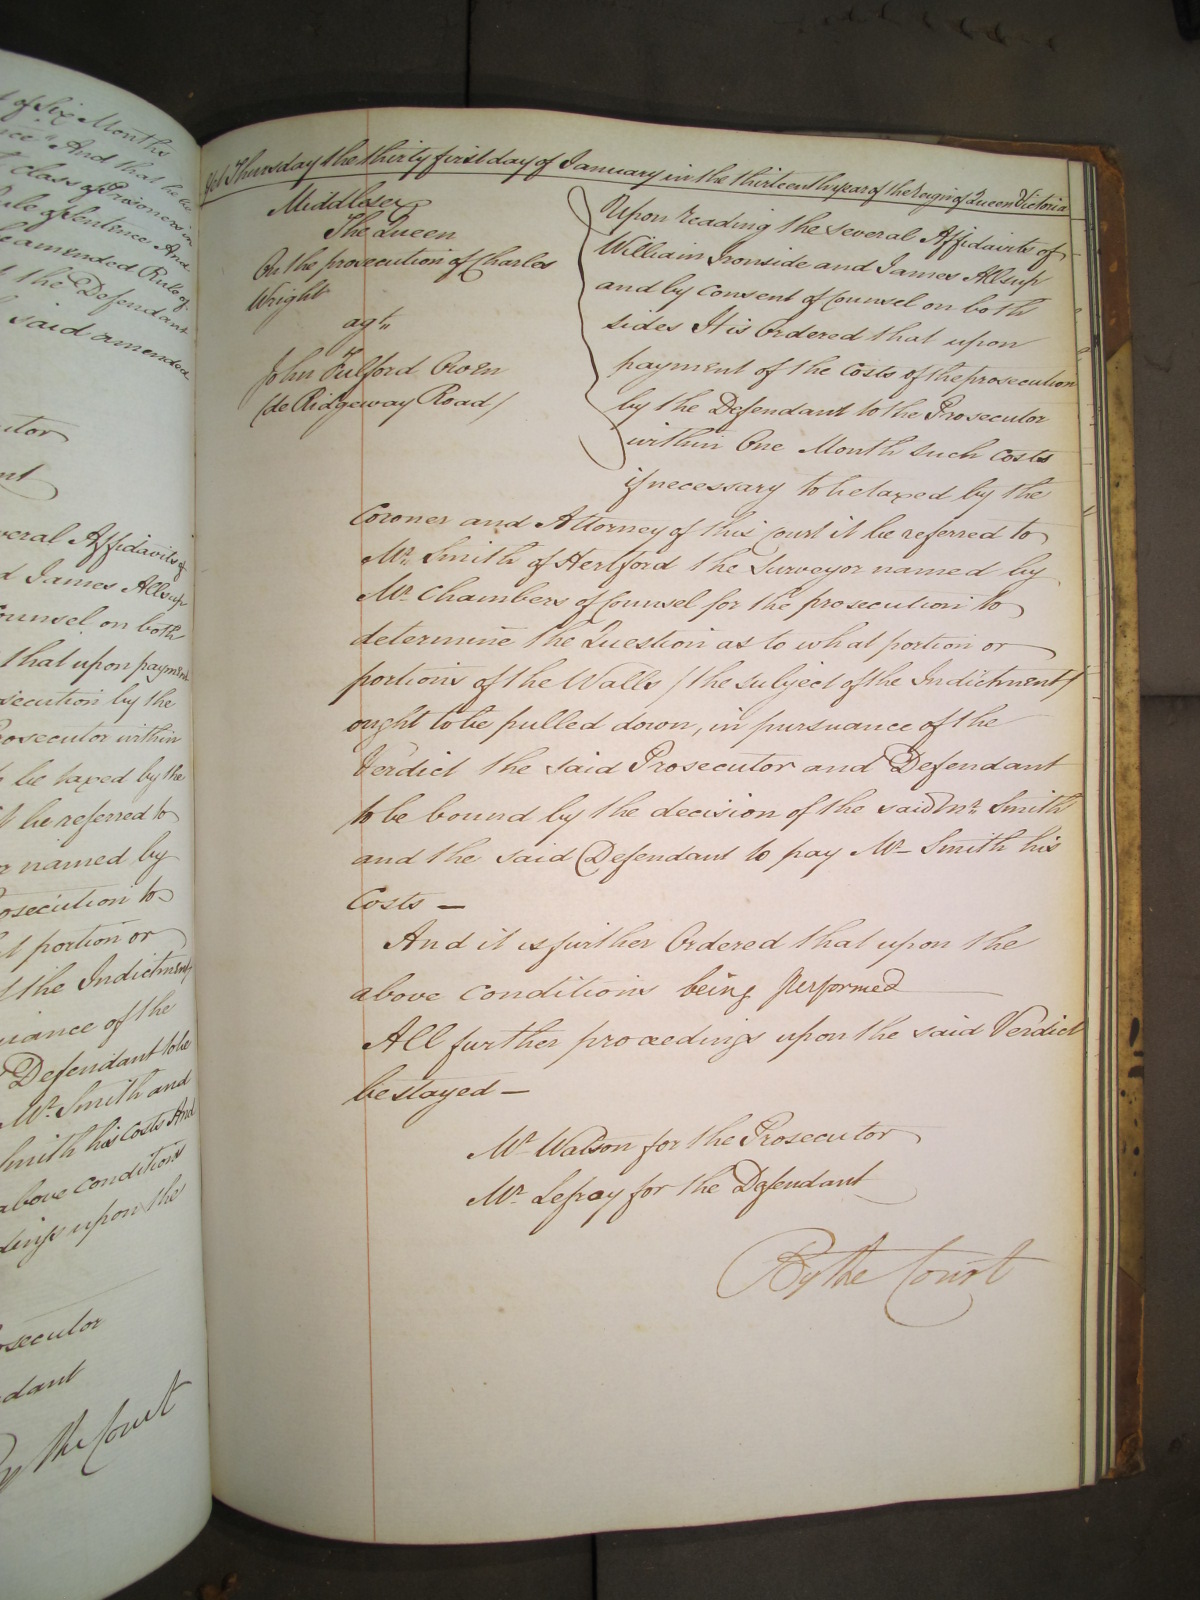 of Six Months
And that he be
class of Prisoners in
Rule of Sentence And
amended Rule of
the Defendant
said amended
Affidavits of
James Allsup
Counsel on both
that upon payment
prosecution by the
Prosecutor within
be taxed by the
it be referred to
named by
prosecution to
portion or
of the Indictment
pursuance of the
Defendant to be
Mr. Smith and
Smith his Costs And
above conditions
upon the
Prosecutor
By the Court
Yet Thursday the thirty first day of January in the thirteenth year of the Reign of Queen Victoria
Middlesex
The Queen
On the prosecution of Charles
Wright
agt.
John Fulford Owen
(de Ridgeway Road)
Upon reading the several Affidavits of
William Ironside and James Allsup
and by consent of Counsel on both
sides It is Ordered that upon
payment of the costs of the prosecution
by the Defendant to the Prosecutor
within One Month such costs
if necessary to be taxed by the
Coroner and Attorney of this Court it be referred to
Mr. Smith of Hertford the Surveyor named by
Mr. Chambers of Counsel for the prosecution to
determine the Question as to what portion or
portions of the Walls (the subject of the Indictment)
ought to be pulled down, in pursuance of the
Verdict the said Prosecutor and Defendant
to be bound by the decision of the said Mr. Smith
and the said Defendant to pay Mr. Smith his
Costs —
And it is further Ordered that upon the
above conditions being performed
All further proceedings upon the said Verdict
be stayed —
Mr. Watson for the Prosecutor
Mr. Lefroy for the Defendant
By the Court